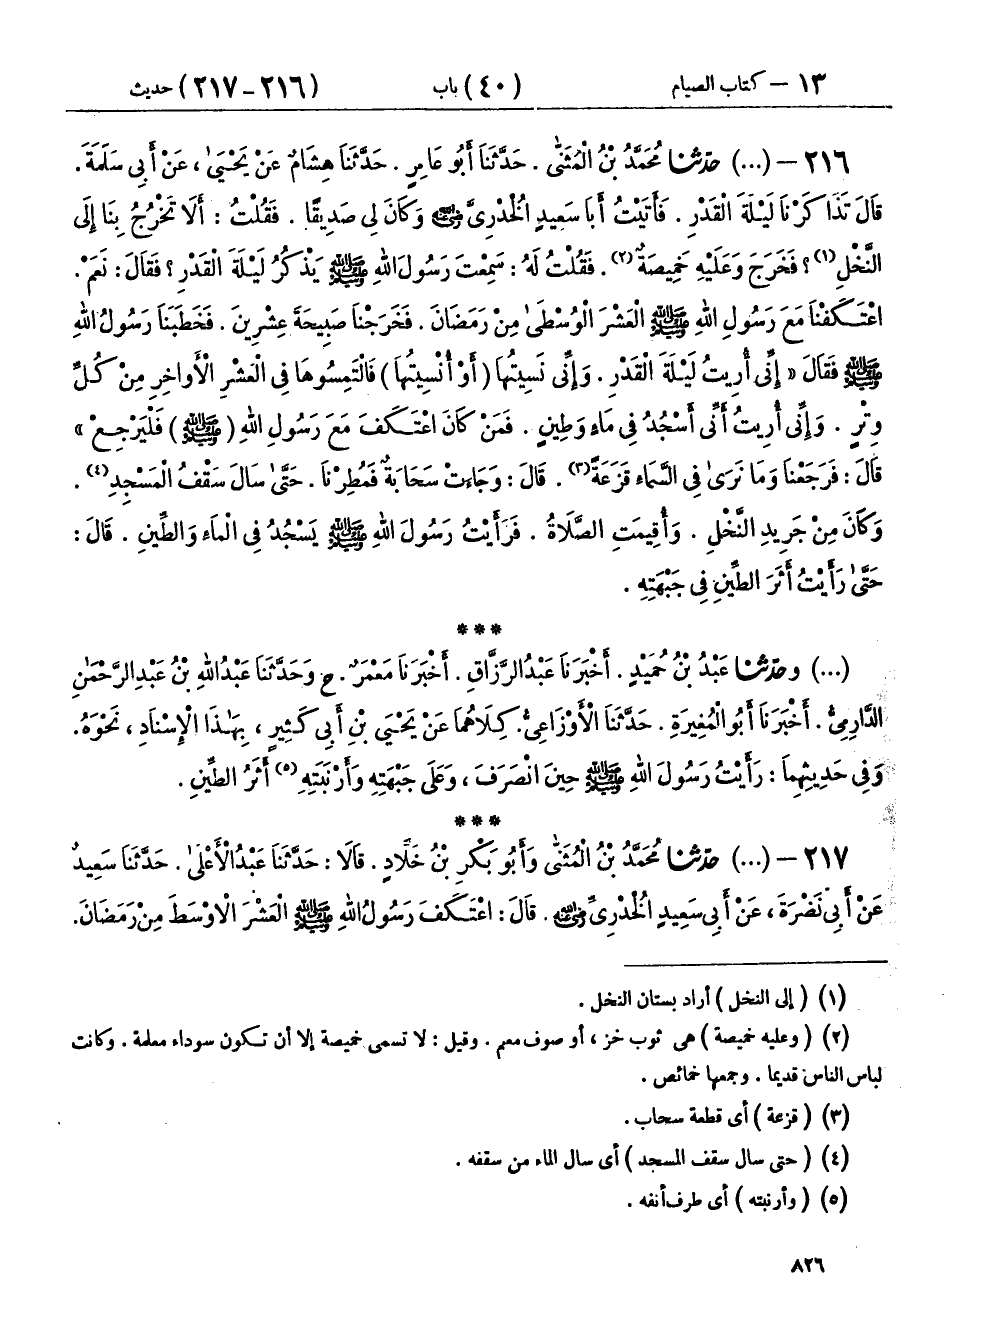 ١٣ – كتاب الصيام (٤٠) باب (٢١٦–٢١٧) حديث
٢١٦ – (...) حَدَّثَنَا مُحَمَّدُ بْنُ الْمُثَنَّىٰ . حَدَّثَنَا أَبُو عَامِرٍ . حَدَّثَنَا هِشَامٌ عَنْ يَحْيَىٰ ، عَنْ أَبِى سَلَمَةَ .
قَالَ تَذَاكَرْنَا لَيْلَةَ الْقَدْرِ . فَأَتَيْتُ أَبَا سَعِيدٍ الْخُدْرِىَّ رضي الله عنه وَكَانَ لِى صَدِيقًا . فَقُلْتُ : أَلَا تَخْرُجُ بِنَا إِلَى
النَّخْلِ(١) ؟ فَخَرَجَ وَعَلَيْهِ خَمِيصَةٌ(٢) . فَقُلْتُ لَهُ : سَمِعْتَ رَسُولَ اللهِ ﷺ يَذْكُرُ لَيْلَةَ الْقَدْرِ ؟ فَقَالَ : نَعَمْ .
اعْتَكَفْنَا مَعَ رَسُولِ اللهِ ﷺ الْعَشْرَ الْوُسْطَىٰ مِنْ رَمَضَانَ . فَخَرَجْنَا صَبِيحَةَ عِشْرِينَ . فَخَطَبَنَا رَسُولُ اللهِ
ﷺ فَقَالَ « إِنِّى أُرِيتُ لَيْلَةَ الْقَدْرِ . وَإِنِّى نَسِيتُهَا ( أَوْ أُنْسِيتُهَا ) فَالْتَمِسُوهَا فِى الْعَشْرِ الْأَوَاخِرِ مِنْ كُلِّ
وِتْرٍ . وَإِنِّى أُرِيتُ أَنِّى أَسْجُدُ فِى مَاءٍ وَطِينٍ . فَمَنْ كَانَ اعْتَكَفَ مَعَ رَسُولِ اللهِ ( ﷺ ) فَلْيَرْجِعْ »
قَالَ : فَرَجَعْنَا وَمَا نَرَىٰ فِى السَّمَاءِ قَزَعَةً(٣) . قَالَ : وَجَاءَتْ سَحَابَةٌ فَمُطِرْنَا . حَتَّىٰ سَالَ سَقْفُ الْمَسْجِدِ(٤) .
وَكَانَ مِنْ جَرِيدِ النَّخْلِ . وَأُقِيمَتِ الصَّلَاةُ . فَرَأَيْتُ رَسُولَ اللهِ ﷺ يَسْجُدُ فِى الْمَاءِ وَالطِّينِ . قَالَ :
حَتَّىٰ رَأَيْتُ أَثَرَ الطِّينِ فِى جَبْهَتِهِ .
***
(...) وحَدَّثَنَا عَبْدُ بْنُ حُمَيْدٍ . أَخْبَرَنَا عَبْدُ الرَّزَّاقِ . أَخْبَرَنَا مَعْمَرٌ . ح وَحَدَّثَنَا عَبْدُ اللهِ بْنُ عَبْدِ الرَّحْمَٰنِ
الدَّارِمِىُّ . أَخْبَرَنَا أَبُو الْمُغِيرَةِ . حَدَّثَنَا الْأَوْزَاعِىُّ . كِلَاهُمَا عَنْ يَحْيَىٰ بْنِ أَبِى كَثِيرٍ ، بِهَٰذَا الْإِسْنَادِ ، نَحْوَهُ .
وَفِى حَدِيثِهِمَا : رَأَيْتُ رَسُولَ اللهِ ﷺ حِينَ انْصَرَفَ ، وَعَلَى جَبْهَتِهِ وَأَرْنَبَتِهِ(٥) أَثَرُ الطِّينِ .
***
٢١٧ – (...) حَدَّثَنَا مُحَمَّدُ بْنُ الْمُثَنَّىٰ وَأَبُو بَكْرِ بْنُ خَلَّادٍ . قَالَا : حَدَّثَنَا عَبْدُ الْأَعْلَىٰ . حَدَّثَنَا سَعِيدٌ
عَنْ أَبِى نَضْرَةَ ، عَنْ أَبِى سَعِيدٍ الْخُدْرِىِّ رضي الله عنه . قَالَ : اعْتَكَفَ رَسُولُ اللهِ ﷺ الْعَشْرَ الْأَوْسَطَ مِنْ رَمَضَانَ .
(١) ( إلى النخل ) أراد بستان النخل .
(٢) ( وعليه خميصة ) هى ثوب خز ، أو صوف معم . وقيل : لا تسمى خميصة إلا أن تكون سوداء معلمة . وكانت
لباس الناس قديما . وجمعها خمائص .
(٣) ( قزعة ) أى قطعة سحاب .
(٤) ( حتى سال سقف المسجد ) أى سال الماء من سقفه .
(٥) ( وأرنبته ) أى طرف أنفه .
٨٢٦